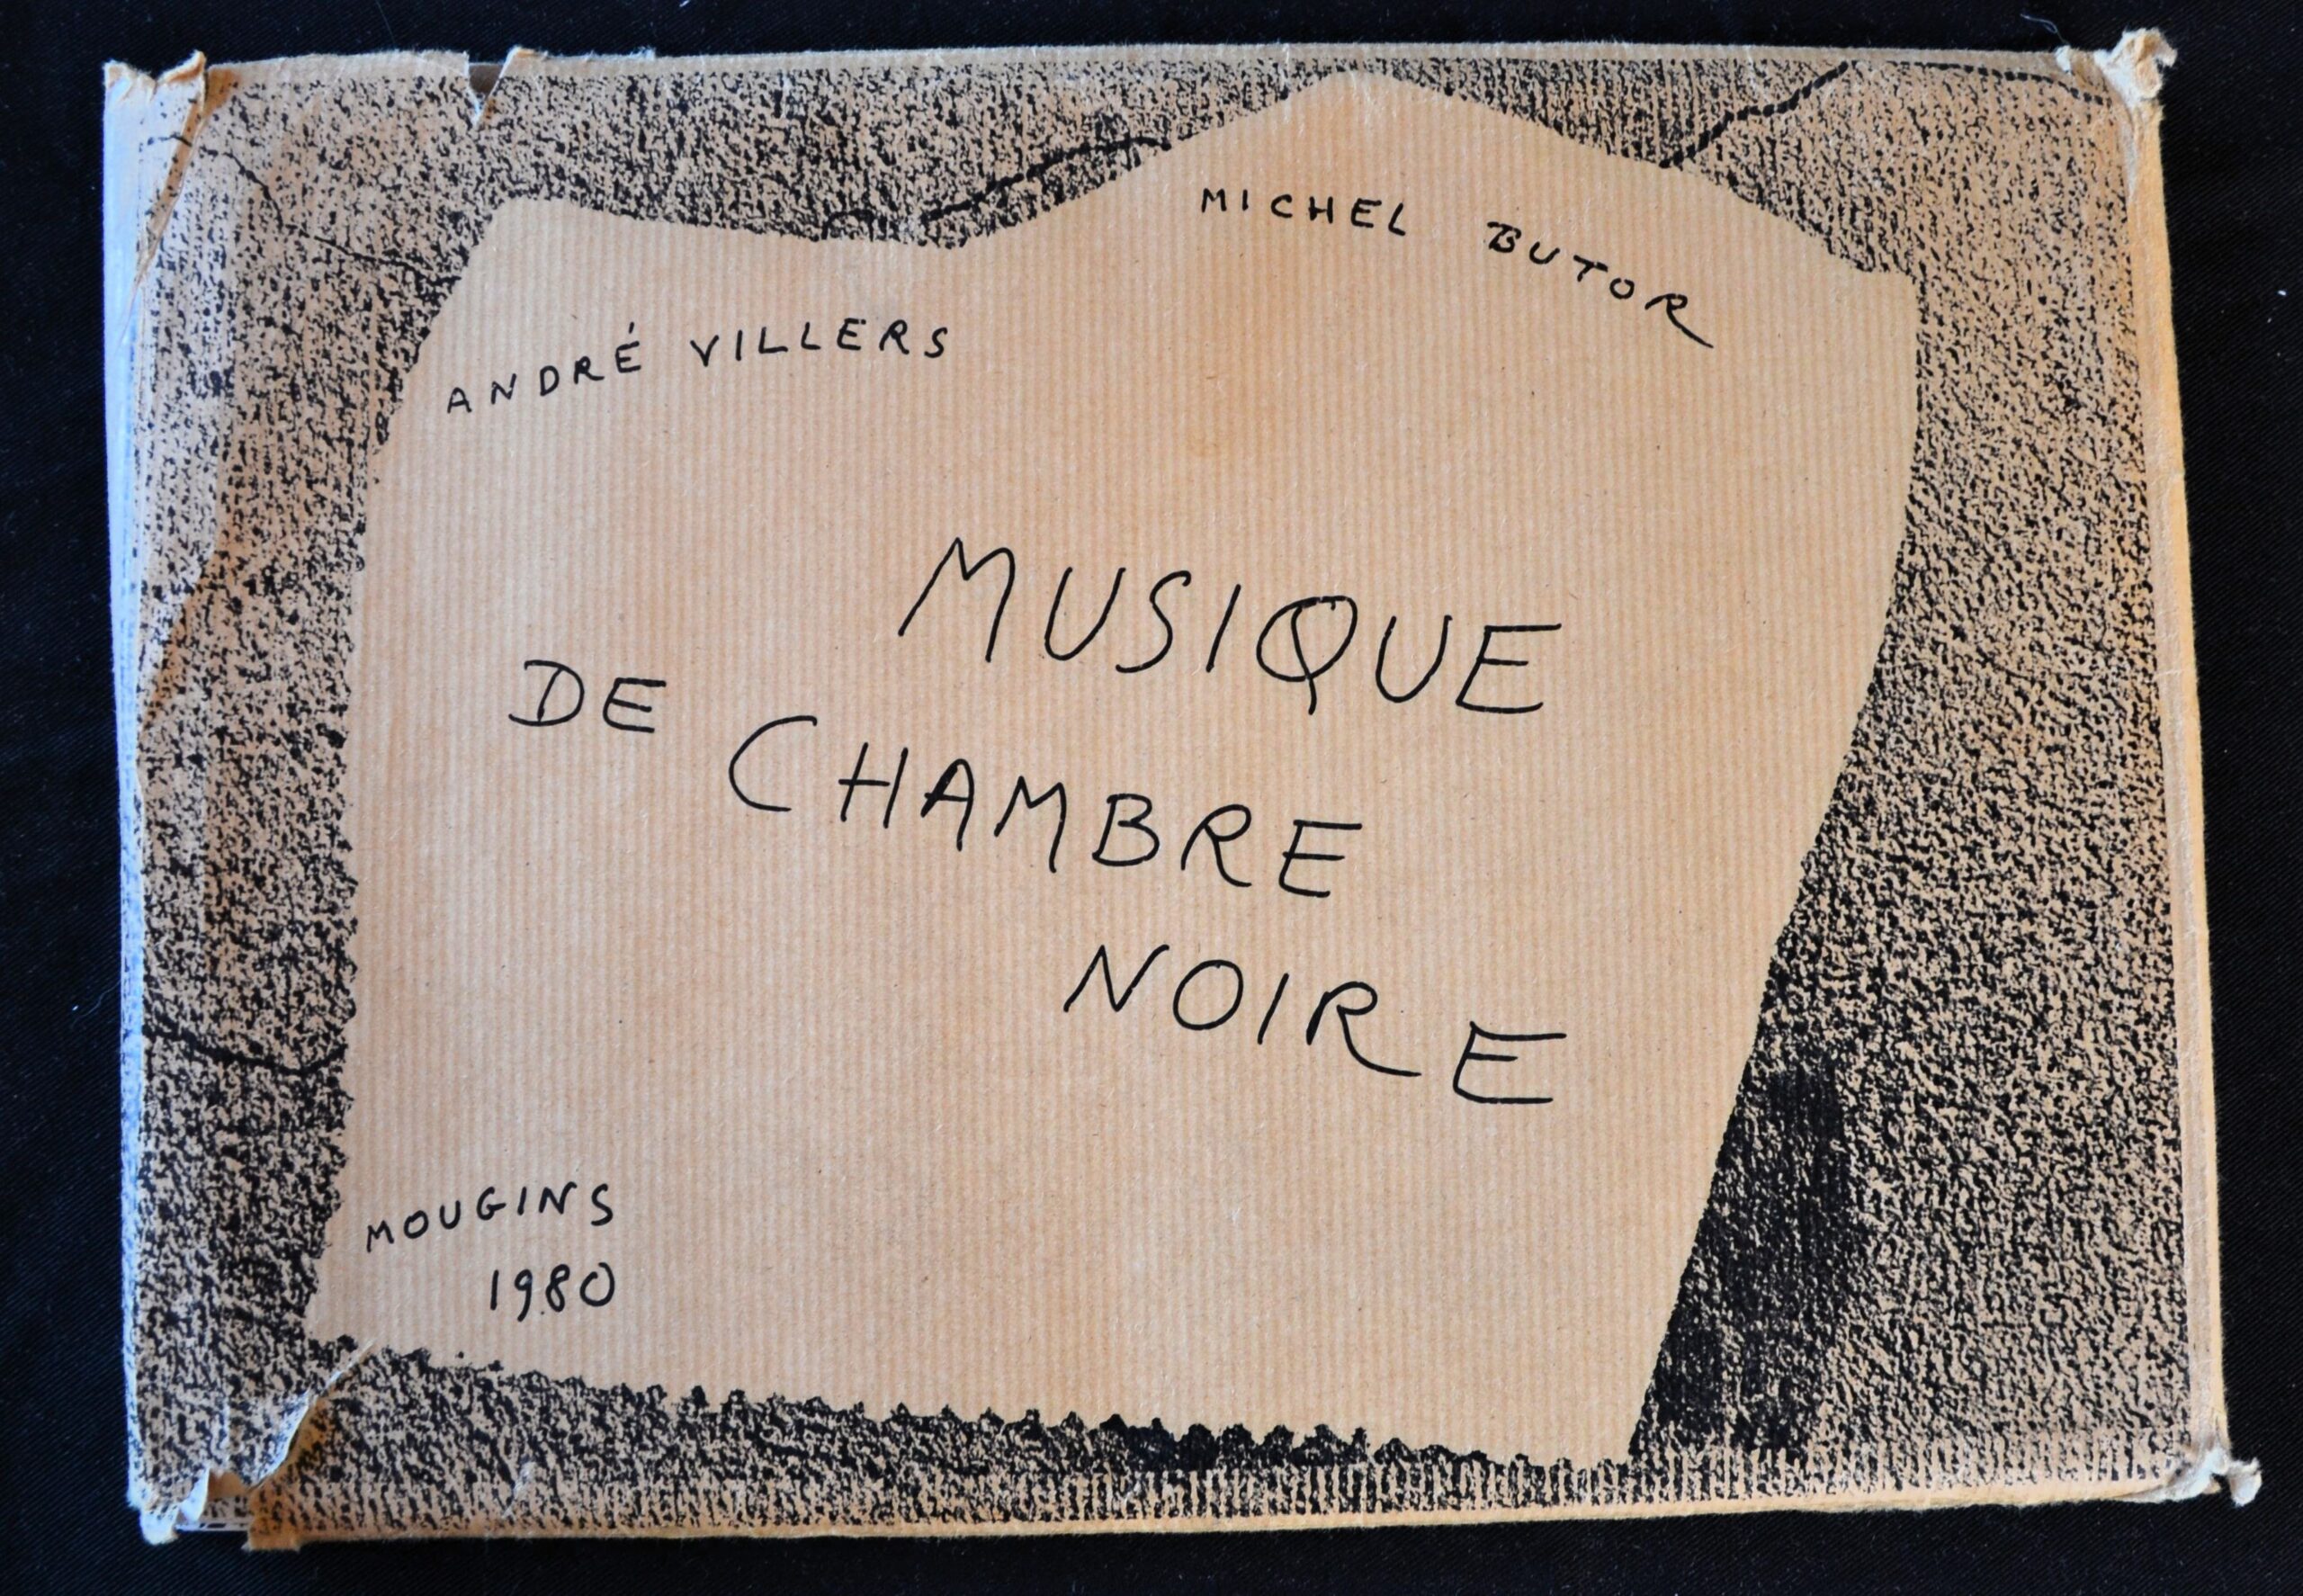 ANDRÉ VILLERS
MICHEL BUTOR
MUSIQUE
DE CHAMBRE
NOIRE
MOUGINS
1980